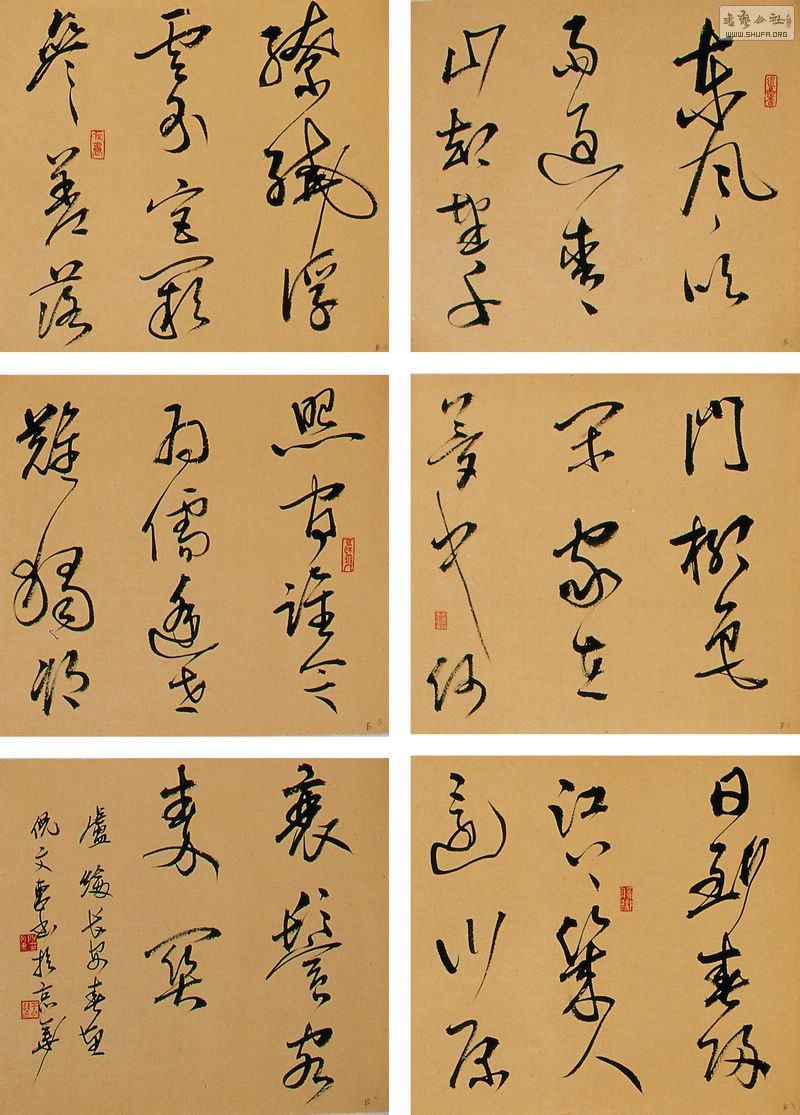 書藝公社
WWW.SHUFA.ORG
東風吹
雨過青
山却望千
門柳色
閑家在
夢中何
日到春歸
江上幾人
還川原
繚繞浮
雲外宮闕
參差落
照間誰念
為儒逢世
難獨將
衰鬢客
秦關
盧綸長安春望
倪文東書於京華